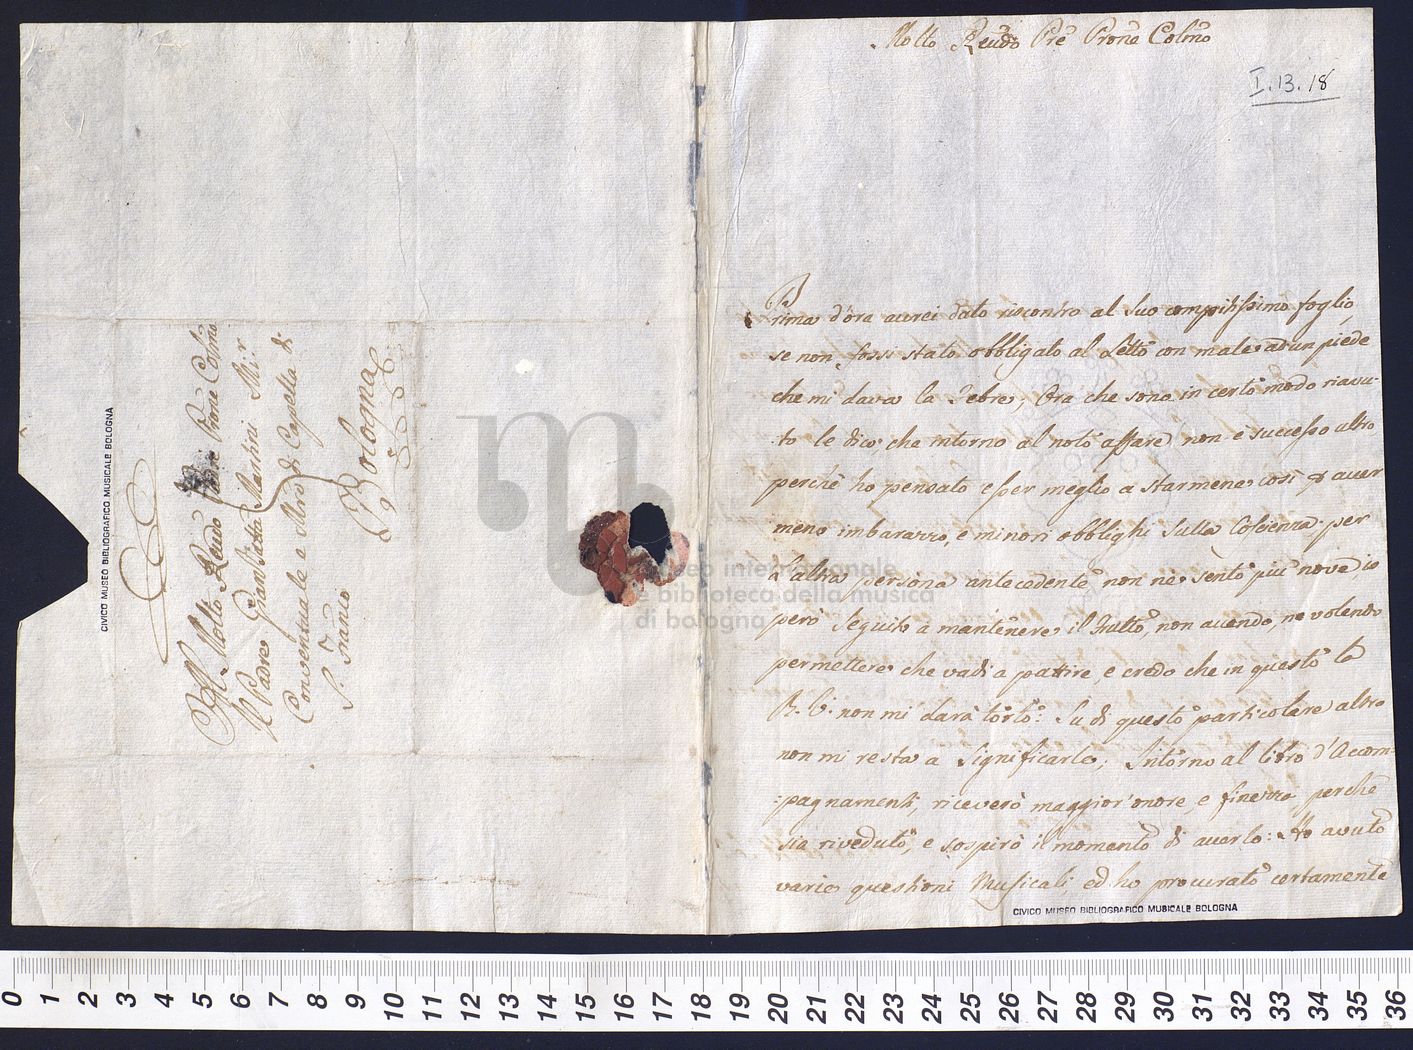 Al Molto Reudo Padre Prone Colmo
Il Padre Gian Batta Martini Mi:r
Conventuale e Mro di Capella di
S. Franco
Bologna
CIVICO MUSEO BIBLIOGRAFICO MUSICALE BOLOGNA
Molto Reudo Pre Prone Colmo
I.13.18
Prima d'ora aurei dato riscontro al suo compitissimo foglio,
se non fossi stato obbligato al Letto con male ad un piede
che mi dava la Febre; Ora che sono in certo modo riauu-
to le dico, che intorno al noto affare non è successo altro
perchè ho pensato esser meglio a starmene così p auer
meno imbarazzo, e minori obblighi sulla Coscienza: per
l'altra persona antecedente non ne sento più nove, io
però seguito a mantenere il Tutto, non auendo, ne volendo
permettere che vadi a patire, e credo che in questo la
R. V. non mi darà torto: Su di questo particolare altro
non mi resta a significarle; Intorno al libro d'Accom-
:pagnamenti, riceverò maggior onore, e finezza perchè
sia riveduto, e sospirò il momento di auerlo: Ho avuto
varie questioni Musicali, ed ho procurato certamente
CIVICO MUSEO BIBLIOGRAFICO MUSICALE BOLOGNA
m
museo internazionale
e biblioteca della musica
di bologna
0 1 2 3 4 5 6 7 8 9 10 11 12 13 14 15 16 17 18 19 20 21 22 23 24 25 26 27 28 29 30 31 32 33 34 35 36